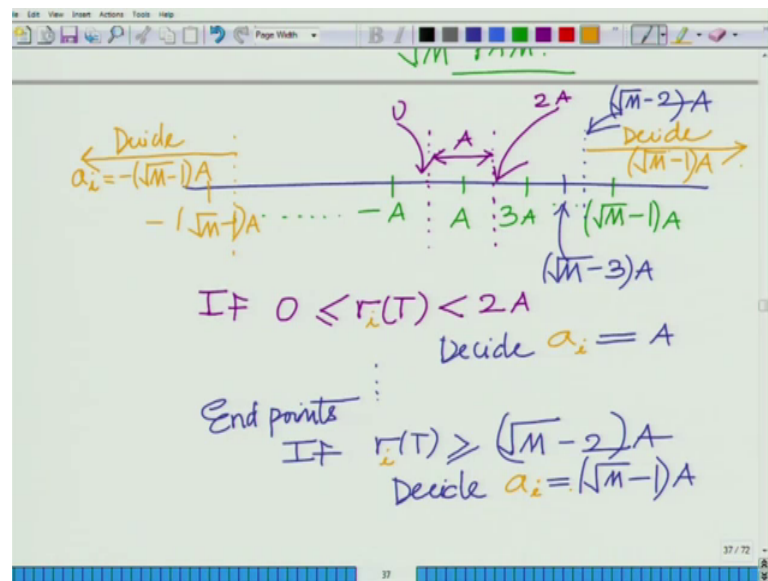 File Edit View Insert Actions Tools Help
Page Width
B I
√M PAM.
0
A
2A
(√M-2)A
Decide
a_i = -(√M-1)A
Decide
(√M-1)A
-(√M-1)A ...... -A A 3A ... (√M-1)A
(√M-3)A
If 0 ≤ r_i(T) < 2A
Decide a_i = A
⋮
End points
If r_i(T) ≥ (√M-2)A
Decide a_i = (√M-1)A
37 / 72
37